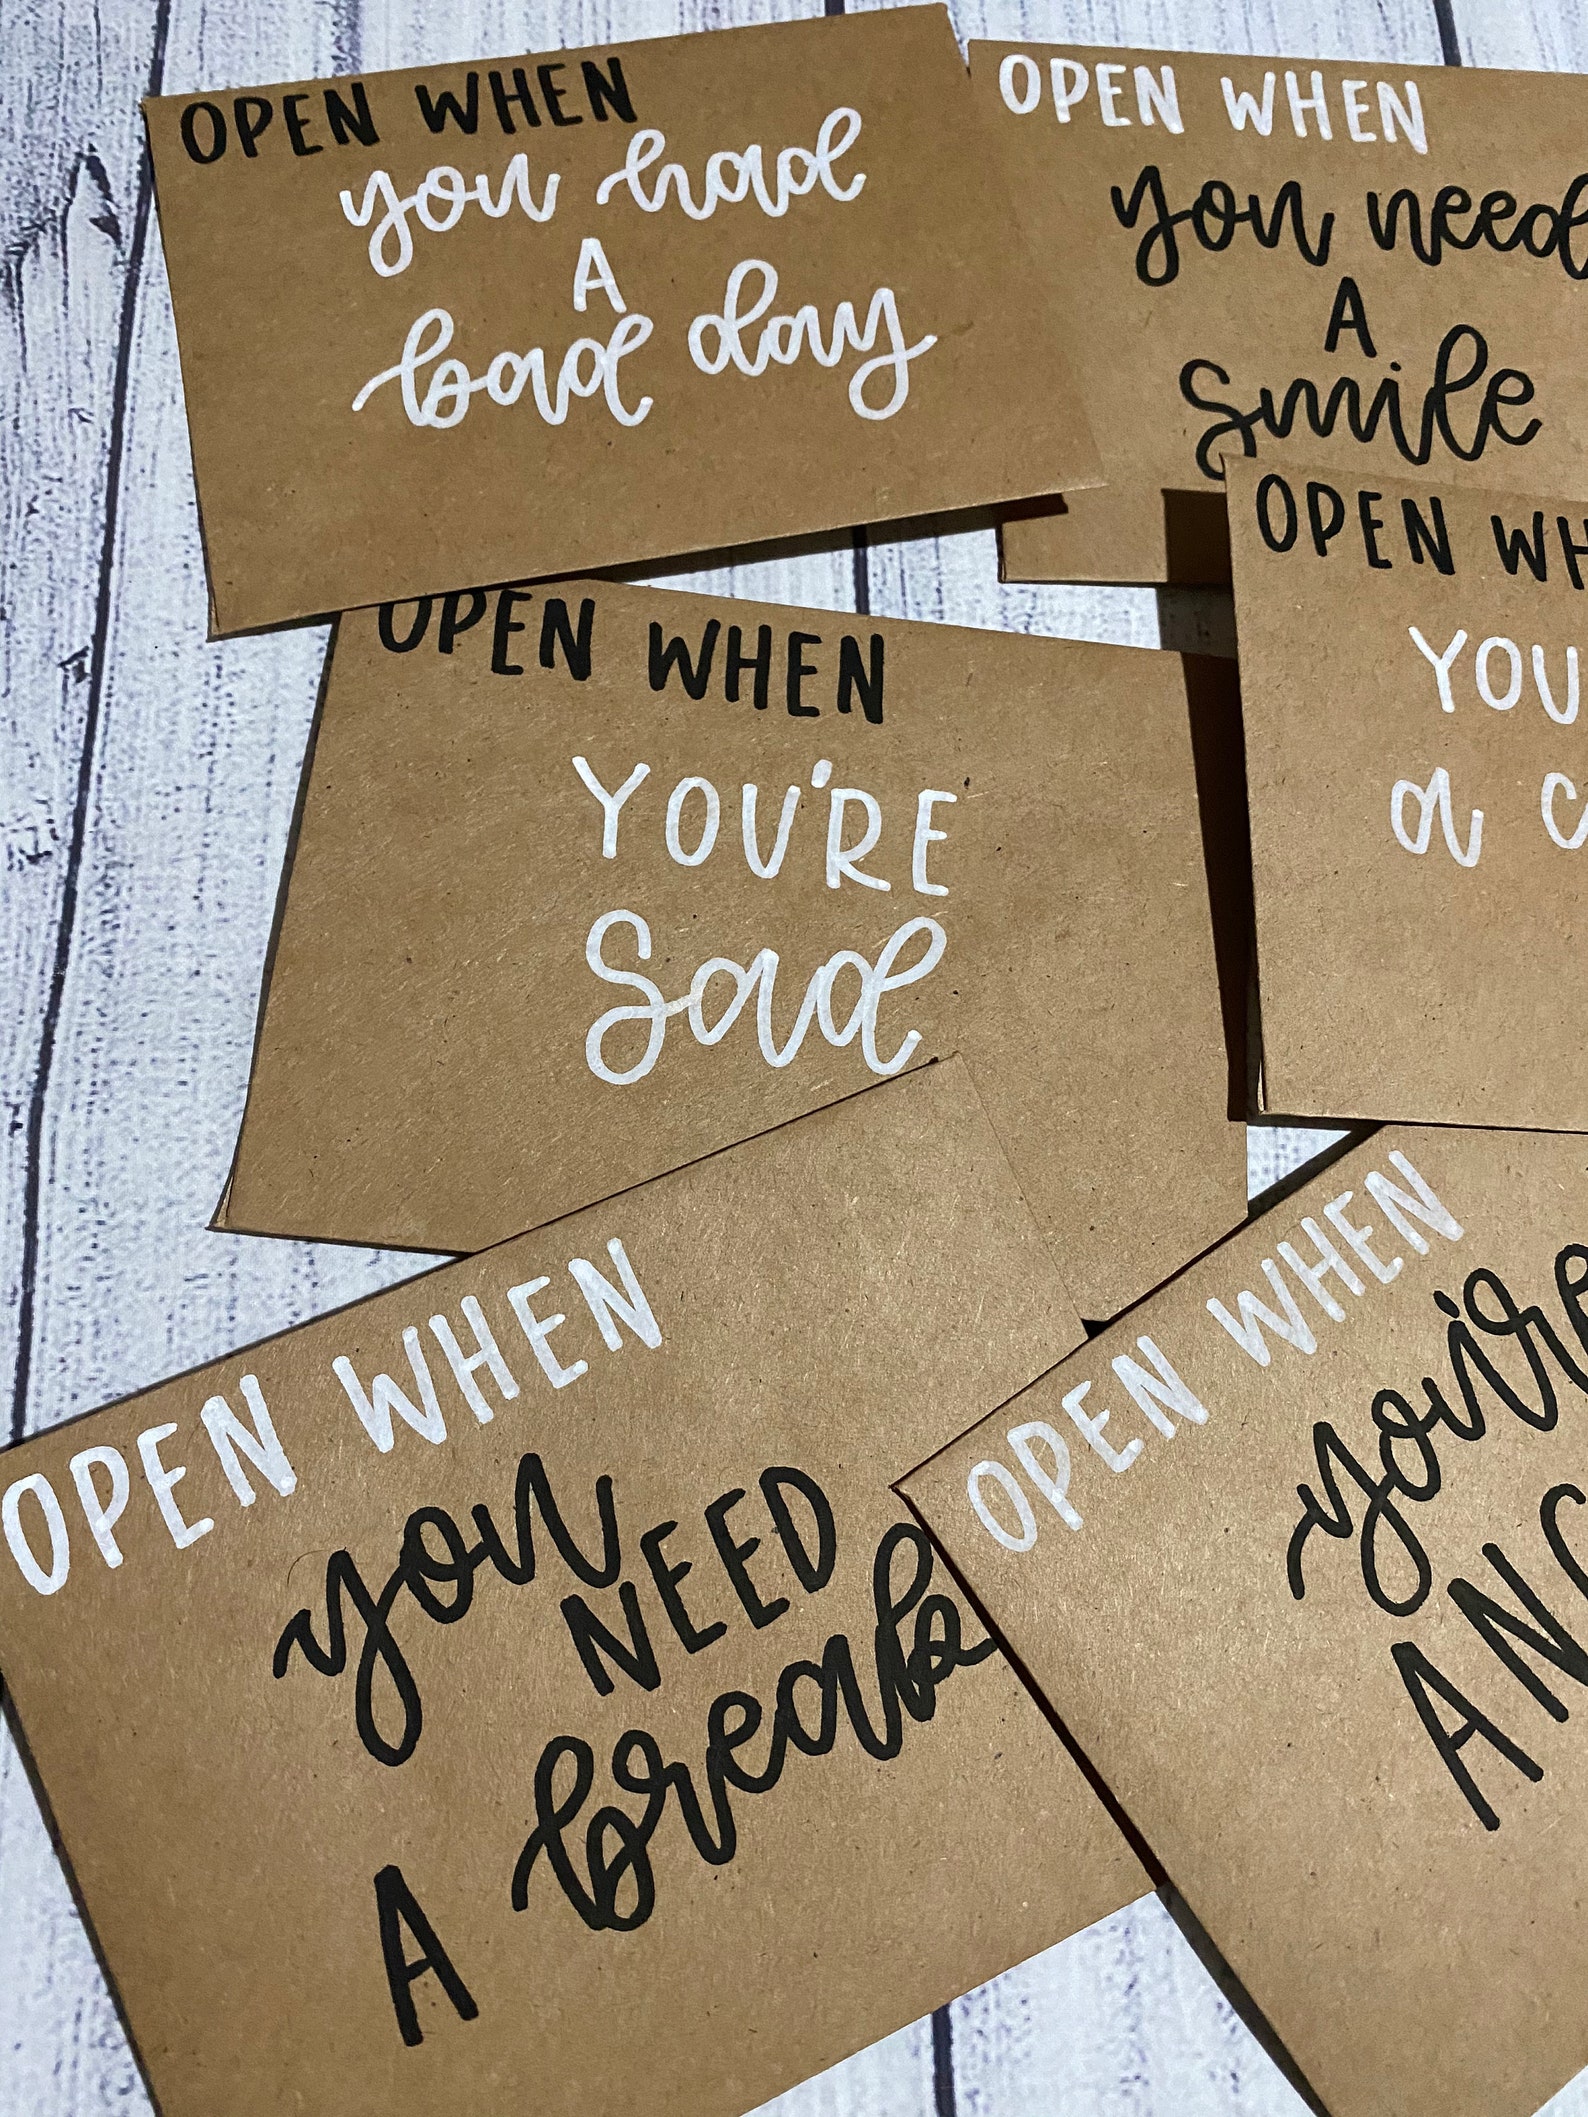 OPEN WHEN
you had
A
bad day
OPEN WHEN
you need
A
smile
OPEN WHEN
YOU'RE
Sad
OPEN WH
YOU
a c
OPEN WHEN
you NEED
A break
OPEN WHEN
you're